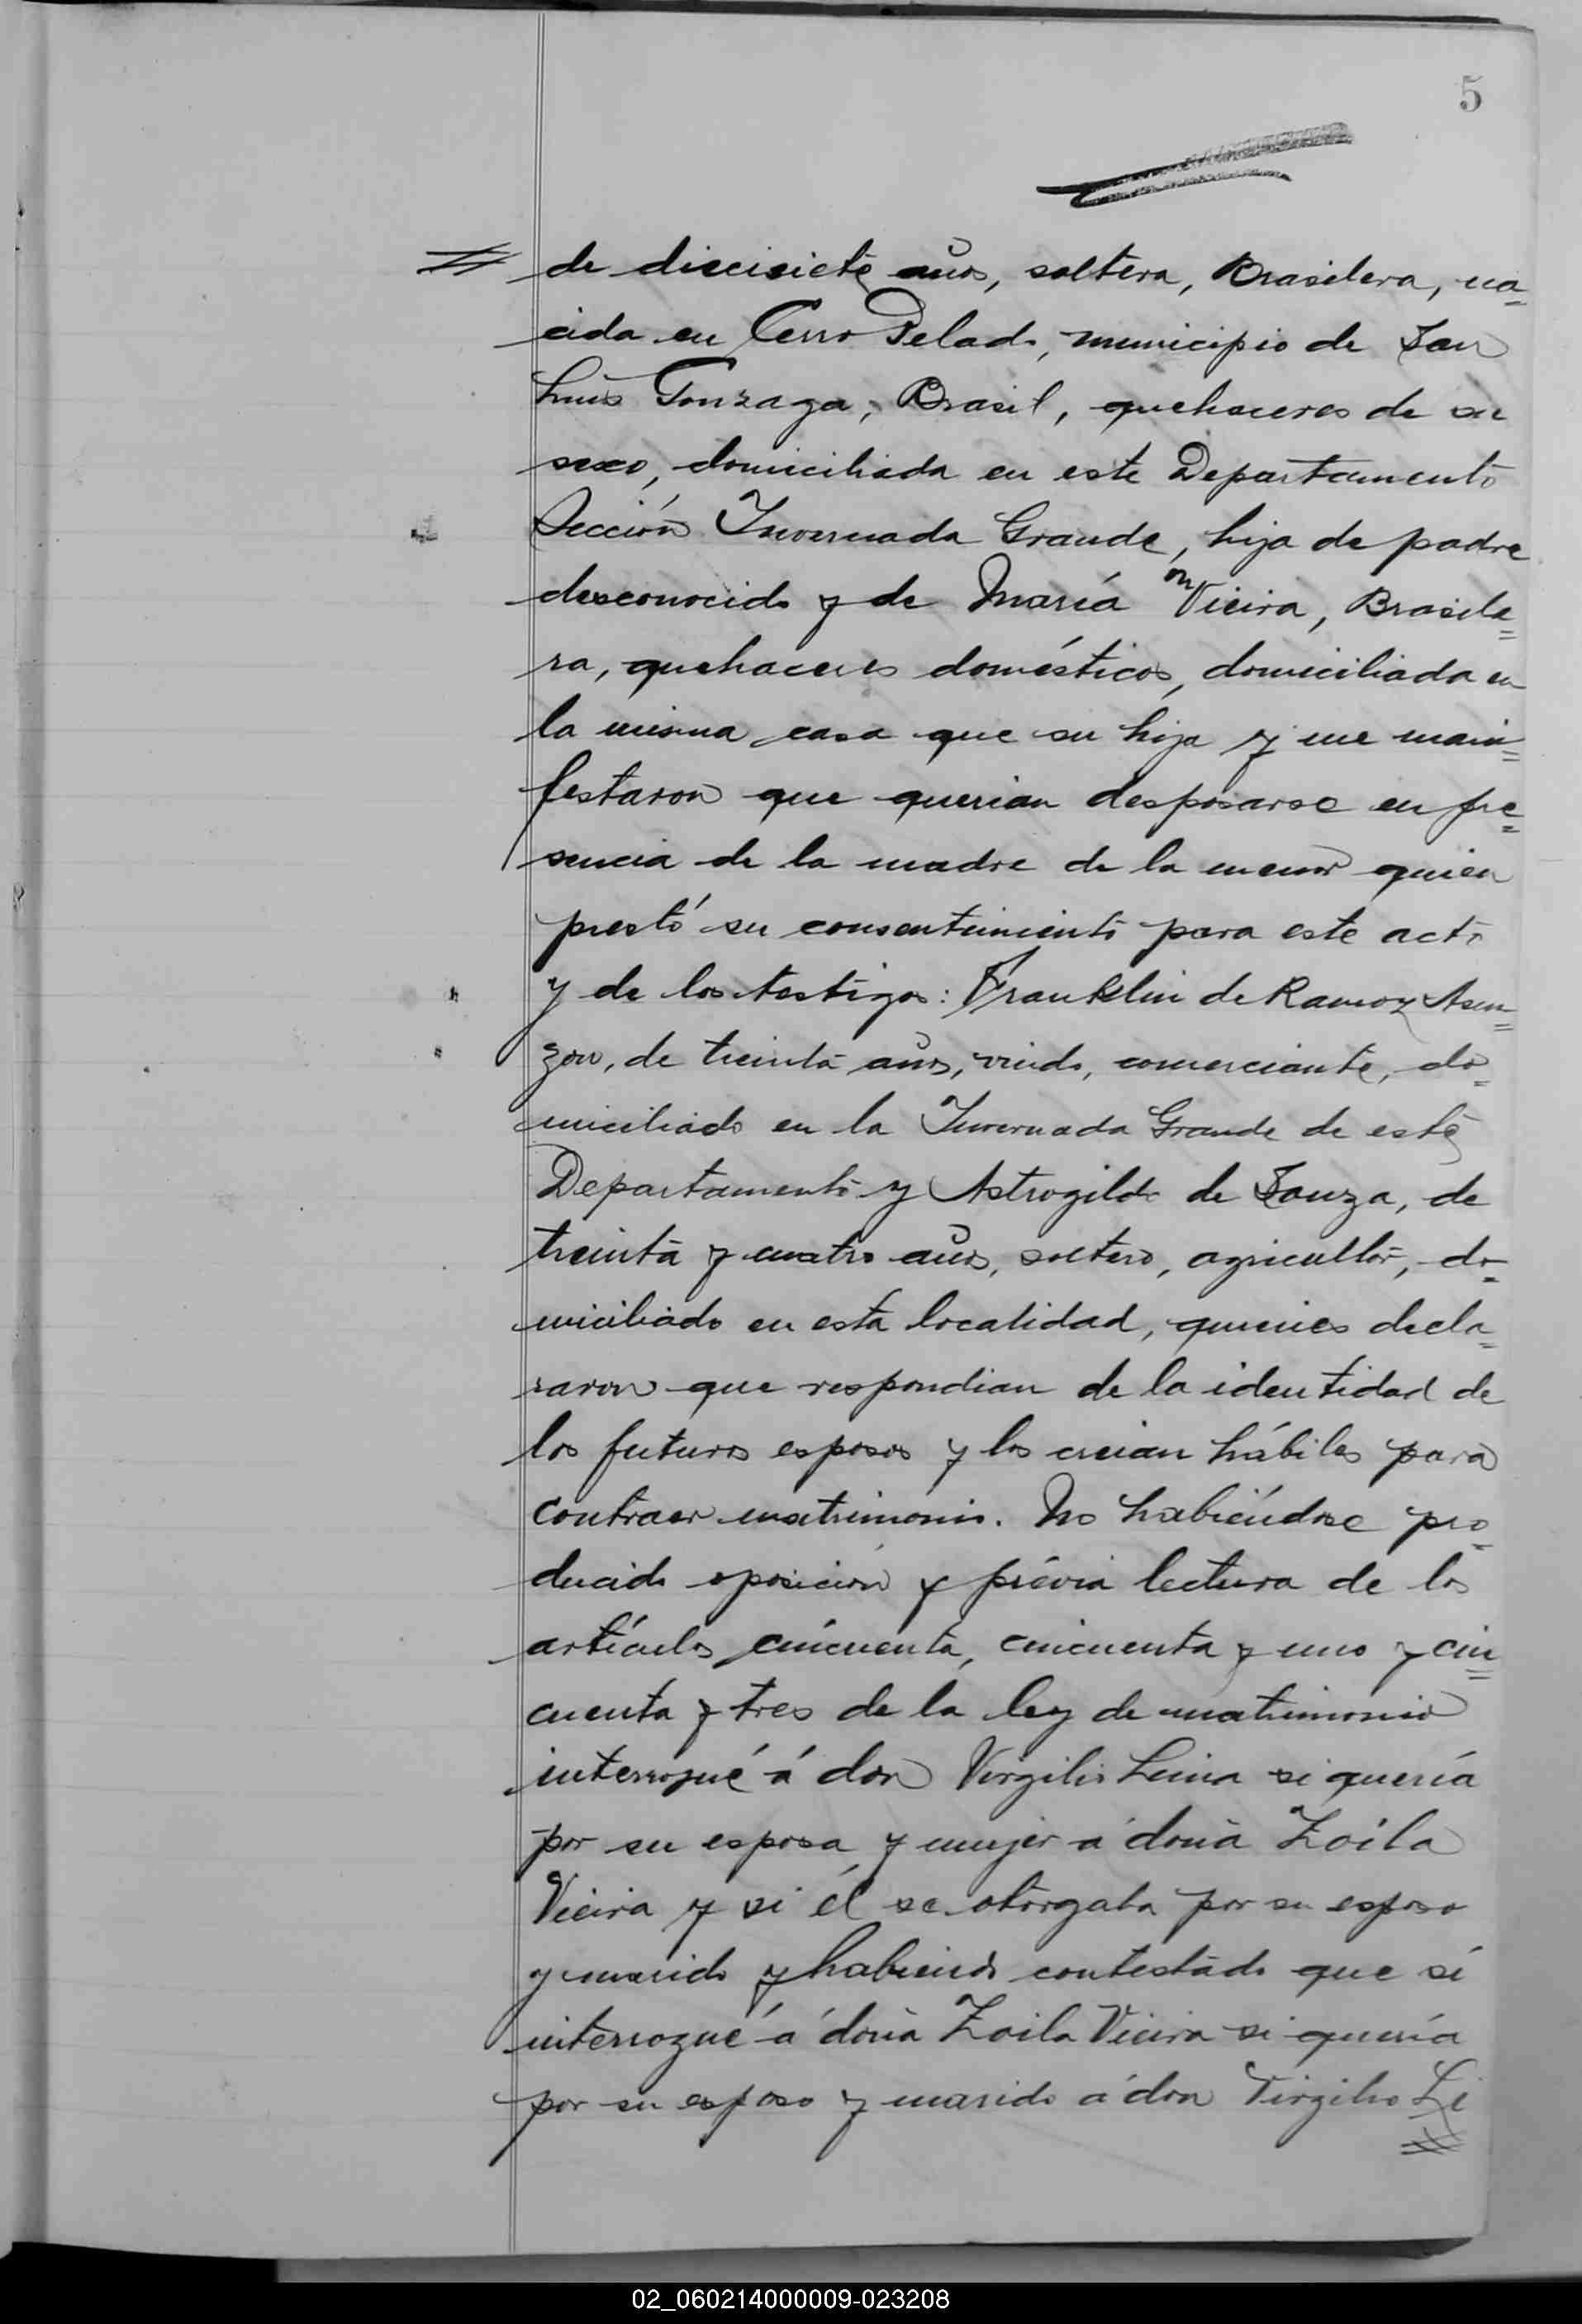 5
de diecisiete años, soltera, Brasilera, na=
cida en Cerro Pelado, municipio de San
Luis Gonzaga, Brasil, quehaceres de su
sexo, domiciliada en este Departamento
Sección Invernada Grande, hija de padre
desconocido y de María Vieira, Brasile=
ra, quehaceres domésticos, domiciliada en
la misma casa que su hija y me mani=
festaron que querian desposarse en pre=
sencia de la madre de la menor quien
prestó su consentimiento para este acto
y de los testigos: Franklin de Ramoz
de treinta años, viudo, comerciante, do=
miciliado en la Invernada Grande de este
Departamento y Astrogildo de Souza, de
treinta y cuatro años, soltero, agricultor, do=
miciliado en esta localidad, quienes decla=
raron que respondian de la identidad de
los futuros esposos y los creian hábiles para
contraer matrimonio. No habiéndose pro=
ducido oposición y prévia lectura de los
artículos cincuenta, cincuenta y uno y cin=
cuenta y tres de la ley de matrimonio
interrogué á don Virgilio Leiria si quería
por su esposa y mujer á doña Zoila
Vieira y si él se otorgaba por su esposo
y marido y habiendo contestado que sí
interrogué á doña Zoila Vieira si quería
por su esposo y marido á don Virgilio
02_060214000009-023208